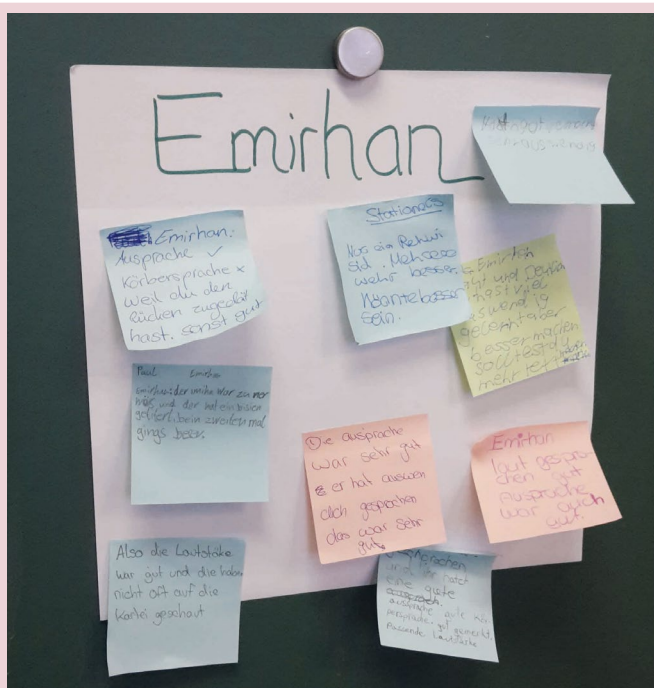 Emirhan
Emirhan:
Ausprache ✓
Körbersprache x
weil du den
rücken zugedät
hast. sonst gut
Stationen
Nur ein Rekwi
sid. Mehrere
wehr besser.
Könnte besser
sein.
Emirhan
und deutlich
hast viel
auswendig
gelernt aber
besser machen
solltest du
mehr
Paul Emirhan
war zu ner
und der hat ein bisen
beim zweiten mal
gings
Die ausprache
war sehr gut
er hat auswen
dich gesprochen
das war sehr
gut.
Emirhan
laut gespro-
chen gut
Ausprache
war auch
gut.
Also die Lautstäke
war gut und die haben
nicht oft auf die
Kartei geschaut
gesprochen
und ihr hatet
eine gute
gute Kör
persprache, gut
Passende Lautstärke